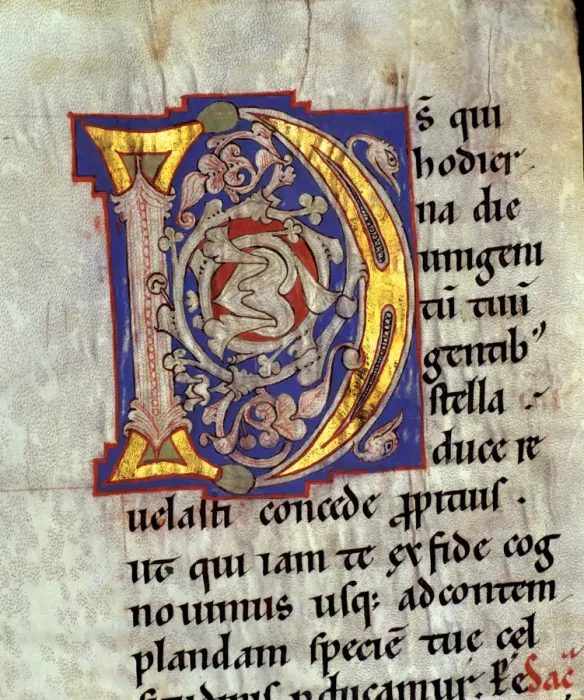 Ds̄ qui
hodier
na die
unigeni
tū tuū
gentib⁹
stella
duce re
uelasti concede ꝓpitius .
ut qui iam te ex fide cog
nouimus usq; ad contem
plandam speciē tue cel
ꝑducamur